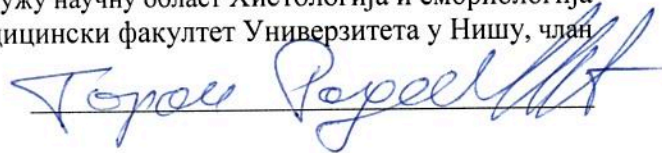 ужу научну област Хистологија и ембриологија
дицински факултет Универзитета у Нишу, члан
Горан